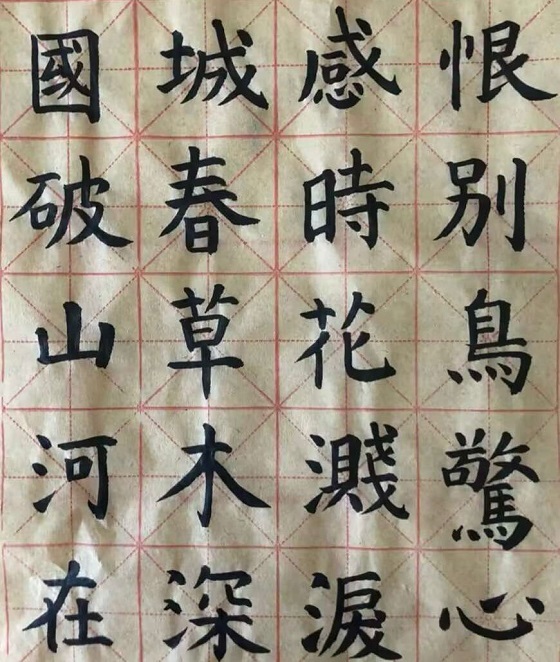 國破山河在
城春草木深
感時花濺淚
恨別鳥驚心